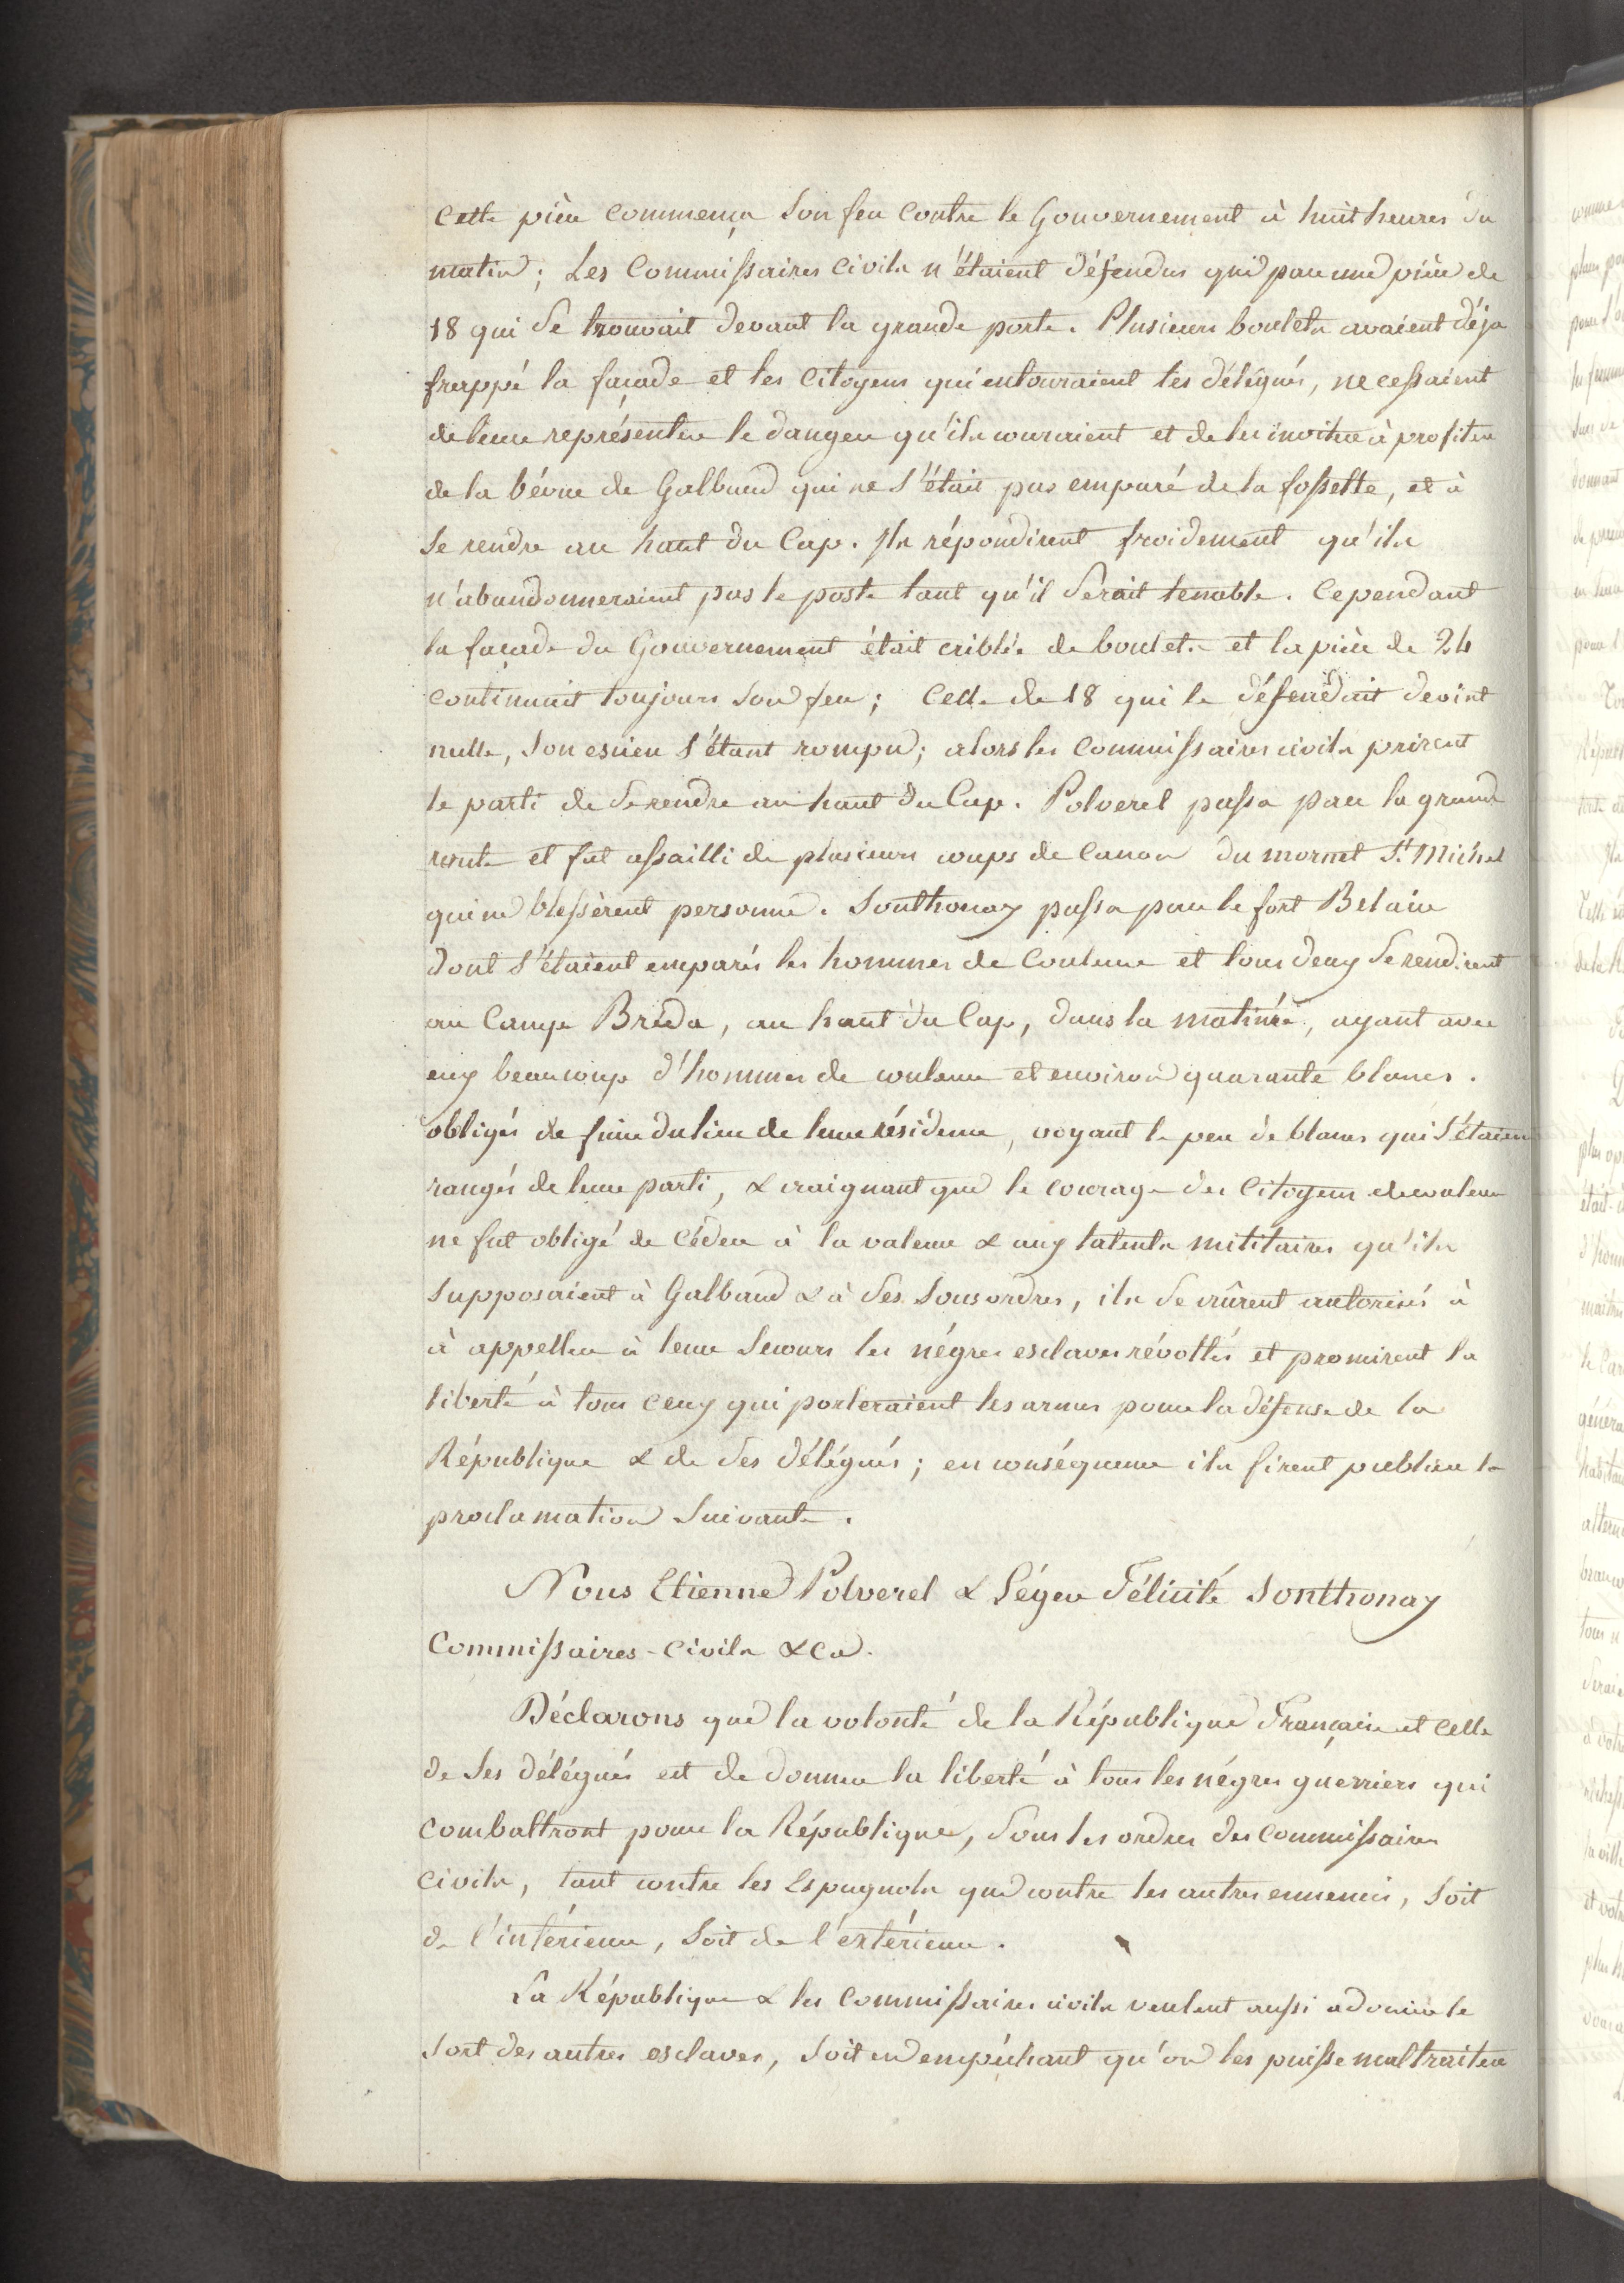 cette pièce commença son feu contre le Gouvernement à huit heures du
matin ; Les Commissaires Civils n'étaient défendus que par une pièce de
18 qui se trouvait devant la grande porte. Plusieurs boulets avaient déja
frappé la façade et les Citoyens qui entouraient les délégués, ne cessaient
de leur représenter le danger qu'ils couraient et de les inviter à profiter
de la bévue de Galbaud qui ne s'était pas emparé de la fossette, et à
se rendre au haut du Cap. Ils répondirent froidement qu'ils
n'abandonneraient pas le poste tant qu'il serait tenable. Cependant
la façade du Gouvernement était criblée de boulets et la pièce de 24
continuait toujours son feu ; Celle de 18 qui le défendait devint
nulle, son essieu s'étant rompu ; alors les Commissaires civils prirent
le parti de se rendre au haut du Cap. Polverel passa par la grand
route et fut assailli de plusieurs coups de Canon du mornet St Michel
qui ne blessèrent personne. Sonthonax passa par le fort Belair
dont s'étaient emparés les hommes de Couleur et tous deux se rendirent
au Camp Bréda, au haut du Cap, dans la matinée, ayant avec
eux beaucoup d'hommes de couleur et environ quarante blancs.
obligés de fuir du lieu de leur résidence, voyant le peu de blancs qui s'étaien
rangés de leur parti, & craignant que le courage des Citoyens de couleur
ne fut obligé de céder à la valeur & aux talents militaires qu'ils
supposaient à Galbaud & à ses sous ordres, ils se crûrent autorisés à
à appeller à leur secours les négres esclaves révoltés et promirent la
liberté à tous ceux qui porteraient les armes pour la défense de la
République & de ses délégués ; en conséquence ils firent publier la
proclamation suivante.
Nous Etienne Polverel & Léger Félicité Sonthonax
Commissaires-Civils &ca.
Déclarons que la volonté de la République Française et celle
de ses délégués est de donner la liberté à tous les négres guerriers qui
combattront pour la République, sous les ordres des Commissaires
Civils, tant contre les Espagnols que contre les autres ennemis, soit
de l'intérieur, soit de l'extérieur.
La République & les Commissaires civils veulent aussi adoucir le
sort des autres esclaves, soit en empéchant qu'on les puisse maltraiter